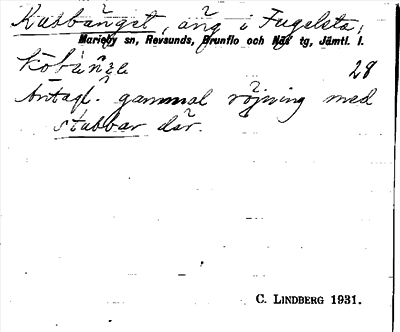 Kubbänget, äng i Fugelsta,
Marieby sn, Revsunds, Brunflo och Näs tg, Jämtl. l.
28
Antagl. gammal röjning med
stubbar där.
C. LINDBERG 1931.